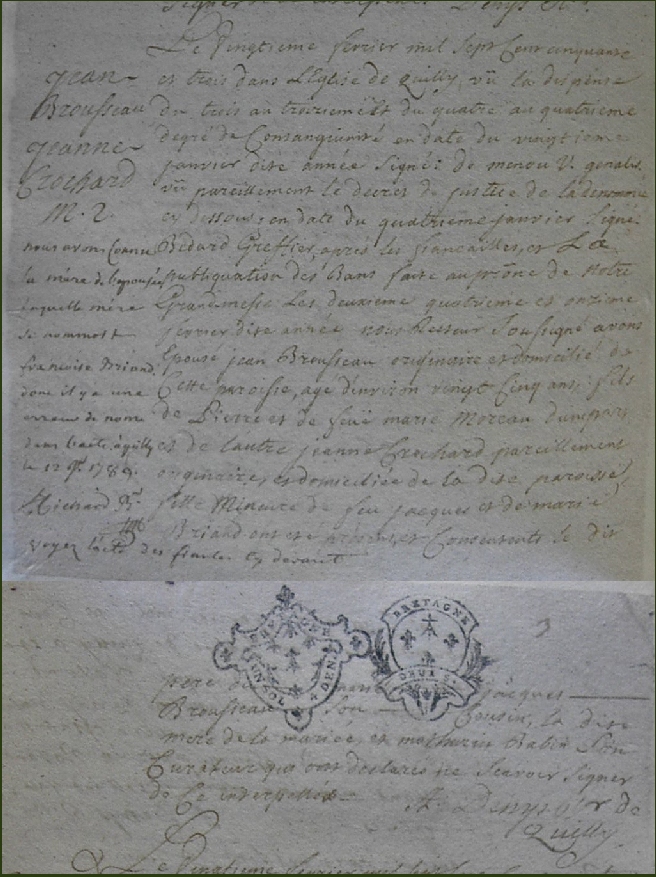 Signer de ce Denys
Le Vingtieme fevrier mil Sept Cent cinquante
et trois dans L'Eglise de Quilly, vû la dispense
du trois au troisieme et du quatre au quatrieme
degré de Consanguinité en date du vingtieme
janvier dite année Signé: de menou V. general,
vû pareillement le decret de justice de la denommée
cy dessous en date du quatrieme janvier Signé
Bedard Greffier, apres les fiancailles, et La
publiquation des Bans faite au prône de notre
Grand messe Les deuxieme quatrieme et onzieme
fevrier dite année nous Recteur Soussigné avons
Epousé jean Brousseau originaire et domicilié de
Cette paroisse, age d'environ vingt Cinq ans, fils
de Pierre et de feuë marie Moreau d'une part
et de l'autre jeanne Crochard pareillement
originaire, et domiciliee de la dite paroisse,
fille Mineure de feu jacques et de marie
Briand ont eté présents, et Consentents le dit
jean
Brousseau
jeanne
Crochard
M. 2.
nous avons Connu
la mère de l'epousée
laquelle mère
se nommoit
francoise Briand,
donc il y a une
erreur de nom
dans l'acte, à quilly
le 12 1789.
Richard
voyez l'acte des fiancles cy devant
BRETAGNE
DEN.
BRETAGNE
DEUX S.
pere jacques
Brousseau Son Cousin, la dite
mere de la mariée, et mathurin Babin Son
Curateur qui ont declarés ne Scavoir Signer
de Ce interpellés
Denys Rr de
Quilly
Le Vingtieme fevrier mil